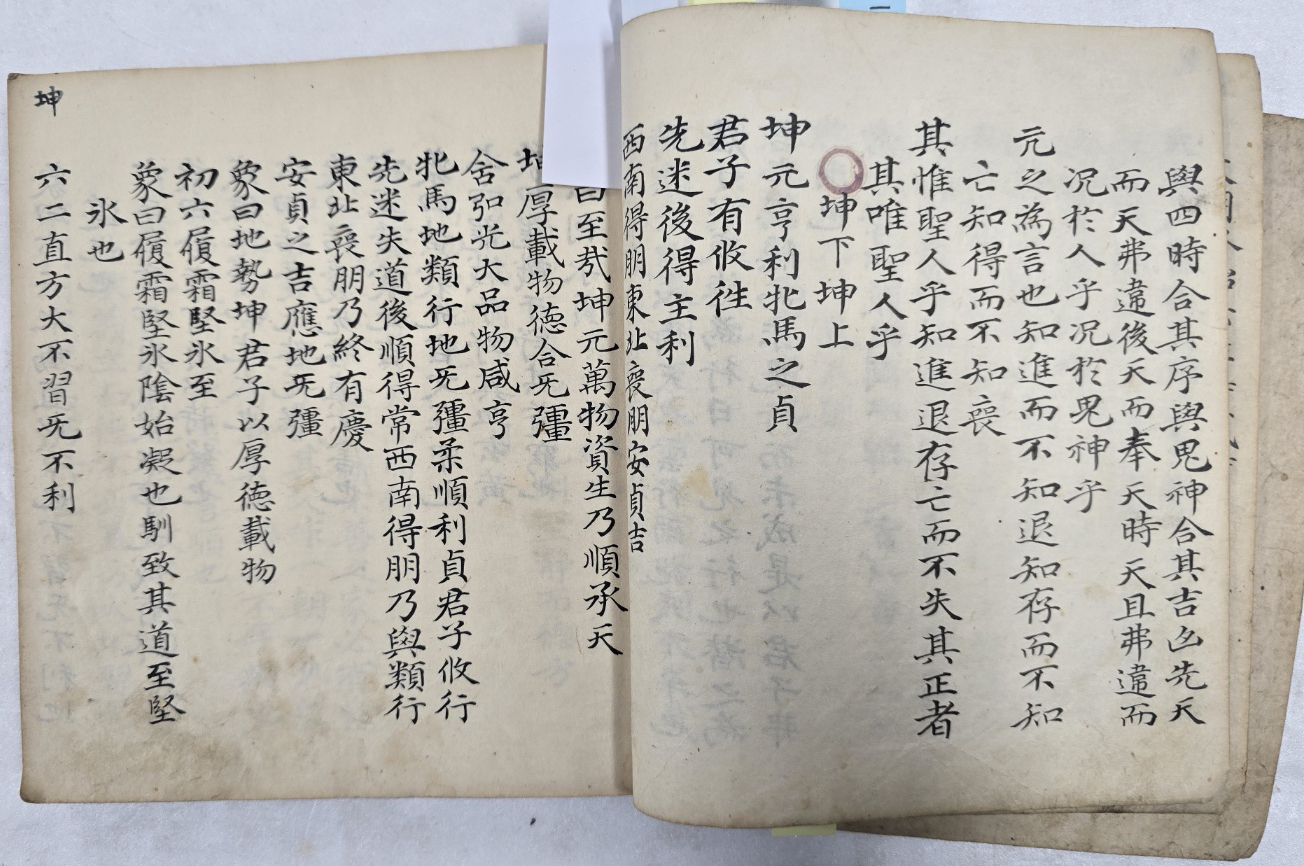 與四時合其序與鬼神合其吉凶先天
而天弗違後天而奉天時天且弗違而
况於人乎况於鬼神乎
亢之為言也知進而不知退知存而不知
亡知得而不知喪
其惟聖人乎知進退存亡而不失其正者
其唯聖人乎
坤下坤上
坤元亨利牝馬之貞
君子有攸往
先迷後得主利
西南得朋東北喪朋安貞吉
曰至㢤坤元萬物資生乃順承天
坤厚載物德合旡疆
含弘光大品物咸亨
牝馬地類行地旡疆柔順利貞君子攸行
先迷失道後順得常西南得朋乃與類行
東北喪朋乃終有慶
安貞之吉應地旡疆
象曰地勢坤君子以厚德載物
初六履霜堅氷至
象曰履霜堅氷陰始凝也馴致其道至堅
氷也
六二直方大不習旡不利
坤